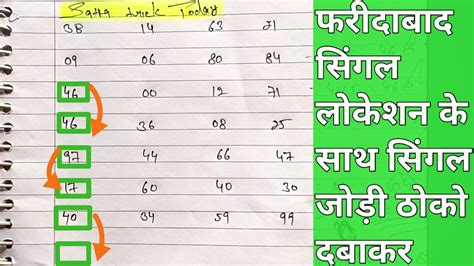 Satta trick Today
38 14 63 71
09 06 80 84
46 00 12 71
46 36 08 25
97 44 66 47
17 60 40 30
40 34 59 99
फरीदाबाद
सिंगल
लोकेशन के
साथ सिंगल
जोड़ी ठोको
दबाकर